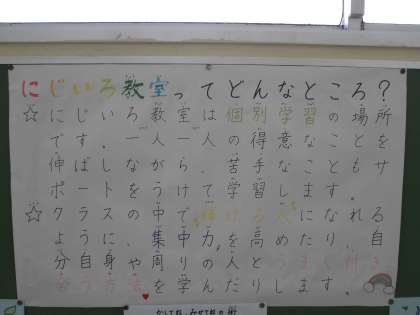 にじいろ教室ってどんなところ?
☆にじいろ教室は個別学習の場所
です。一人一人の得意なことを
伸ばしながら、苦手なこともサ
ポートをうけて学習します。
☆クラスの中で輝ける人になれる
ように、集中力を高めたり、自
分自身や周りの人とうまく付き
合う方法を学んだりします。